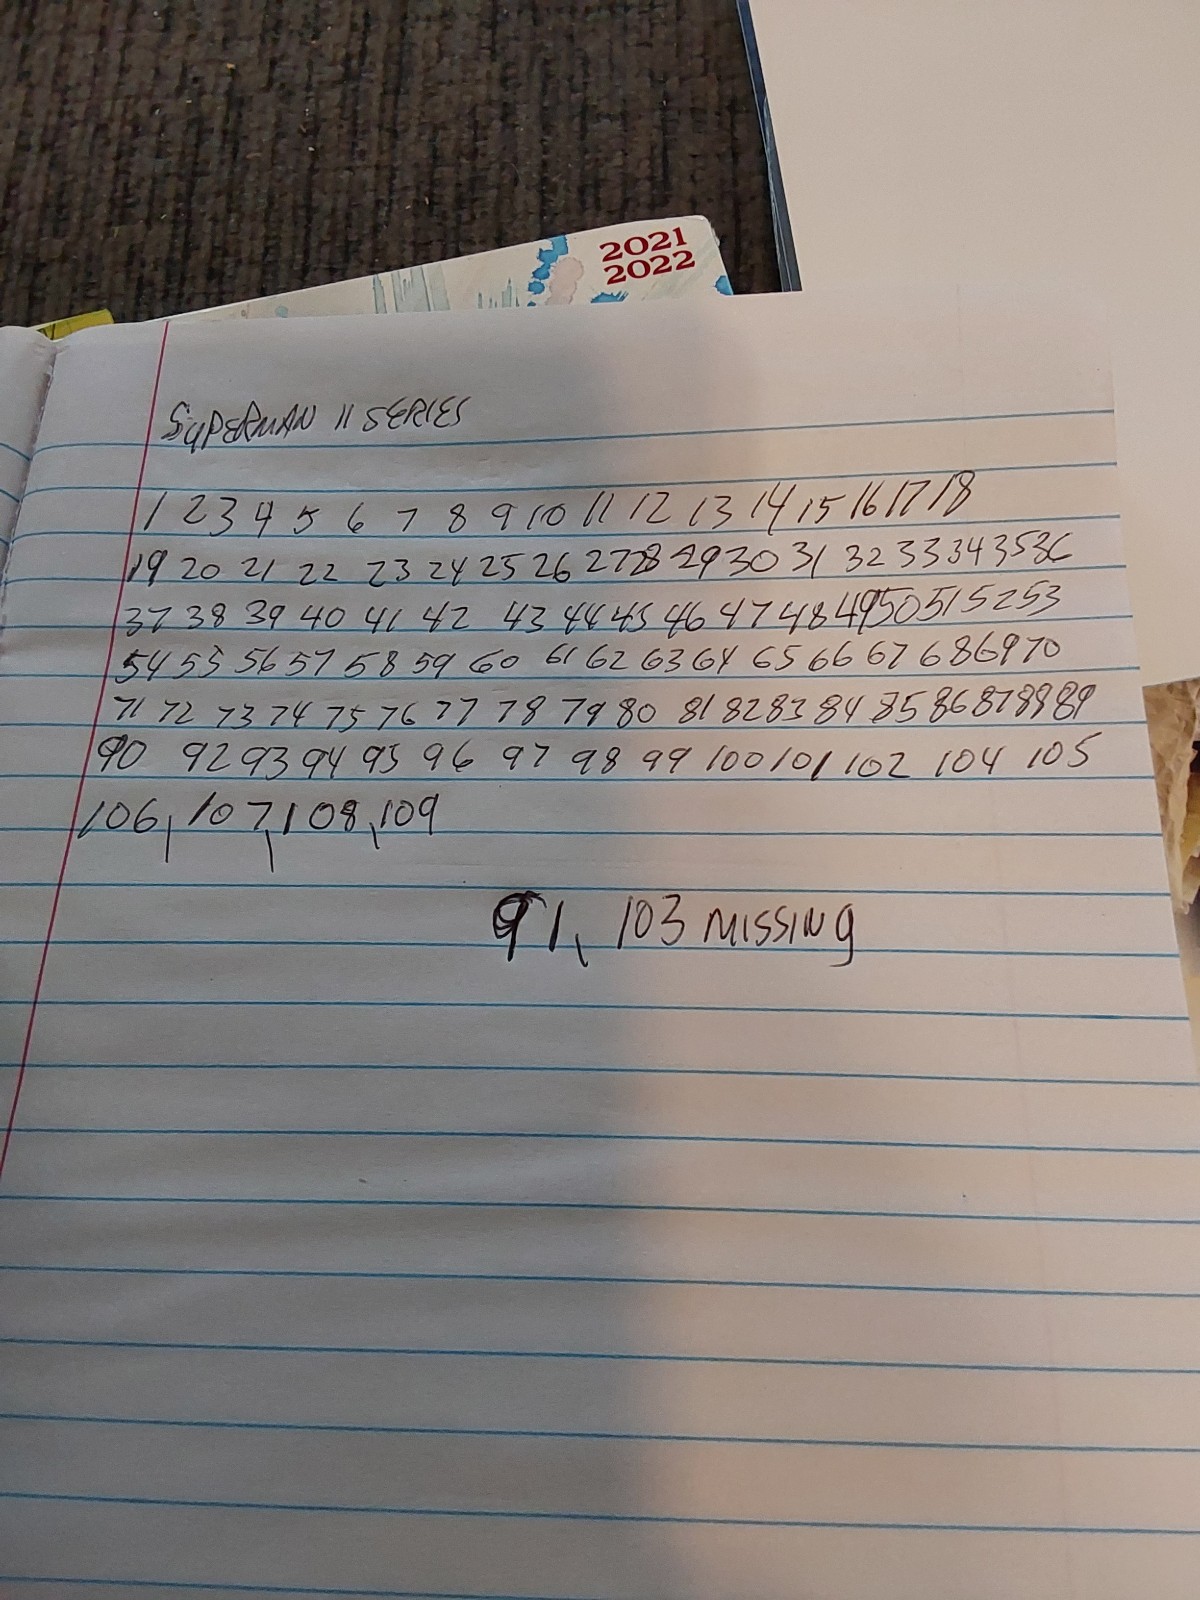 2021
2022
SUPERMAN II SERIES
1 2 3 4 5 6 7 8 9 10 11 12 13 14 15 16 17 18
19 20 21 22 23 24 25 26 27 28 29 30 31 32 33 34 35 36
37 38 39 40 41 42 43 44 45 46 47 48 49 50 51 52 53
54 55 56 57 58 59 60 61 62 63 64 65 66 67 68 69 70
71 72 73 74 75 76 77 78 79 80 81 82 83 84 85 86 87 88 89
90 92 93 94 95 96 97 98 99 100 101 102 104 105
106, 107, 108, 109
91, 103 MISSING